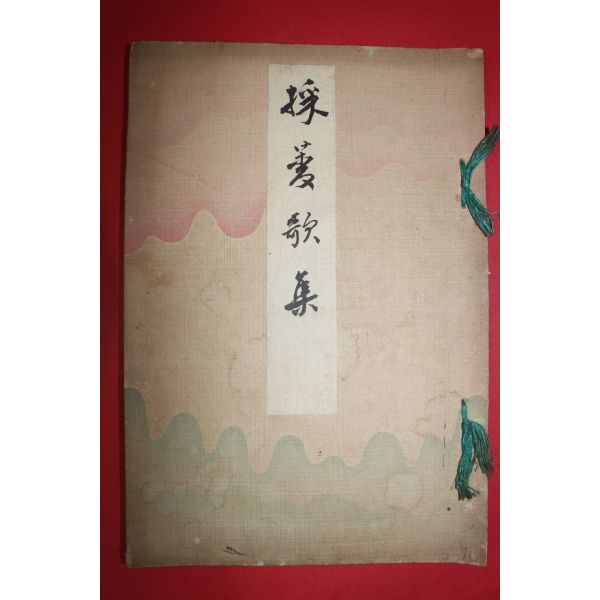 採菱歌集